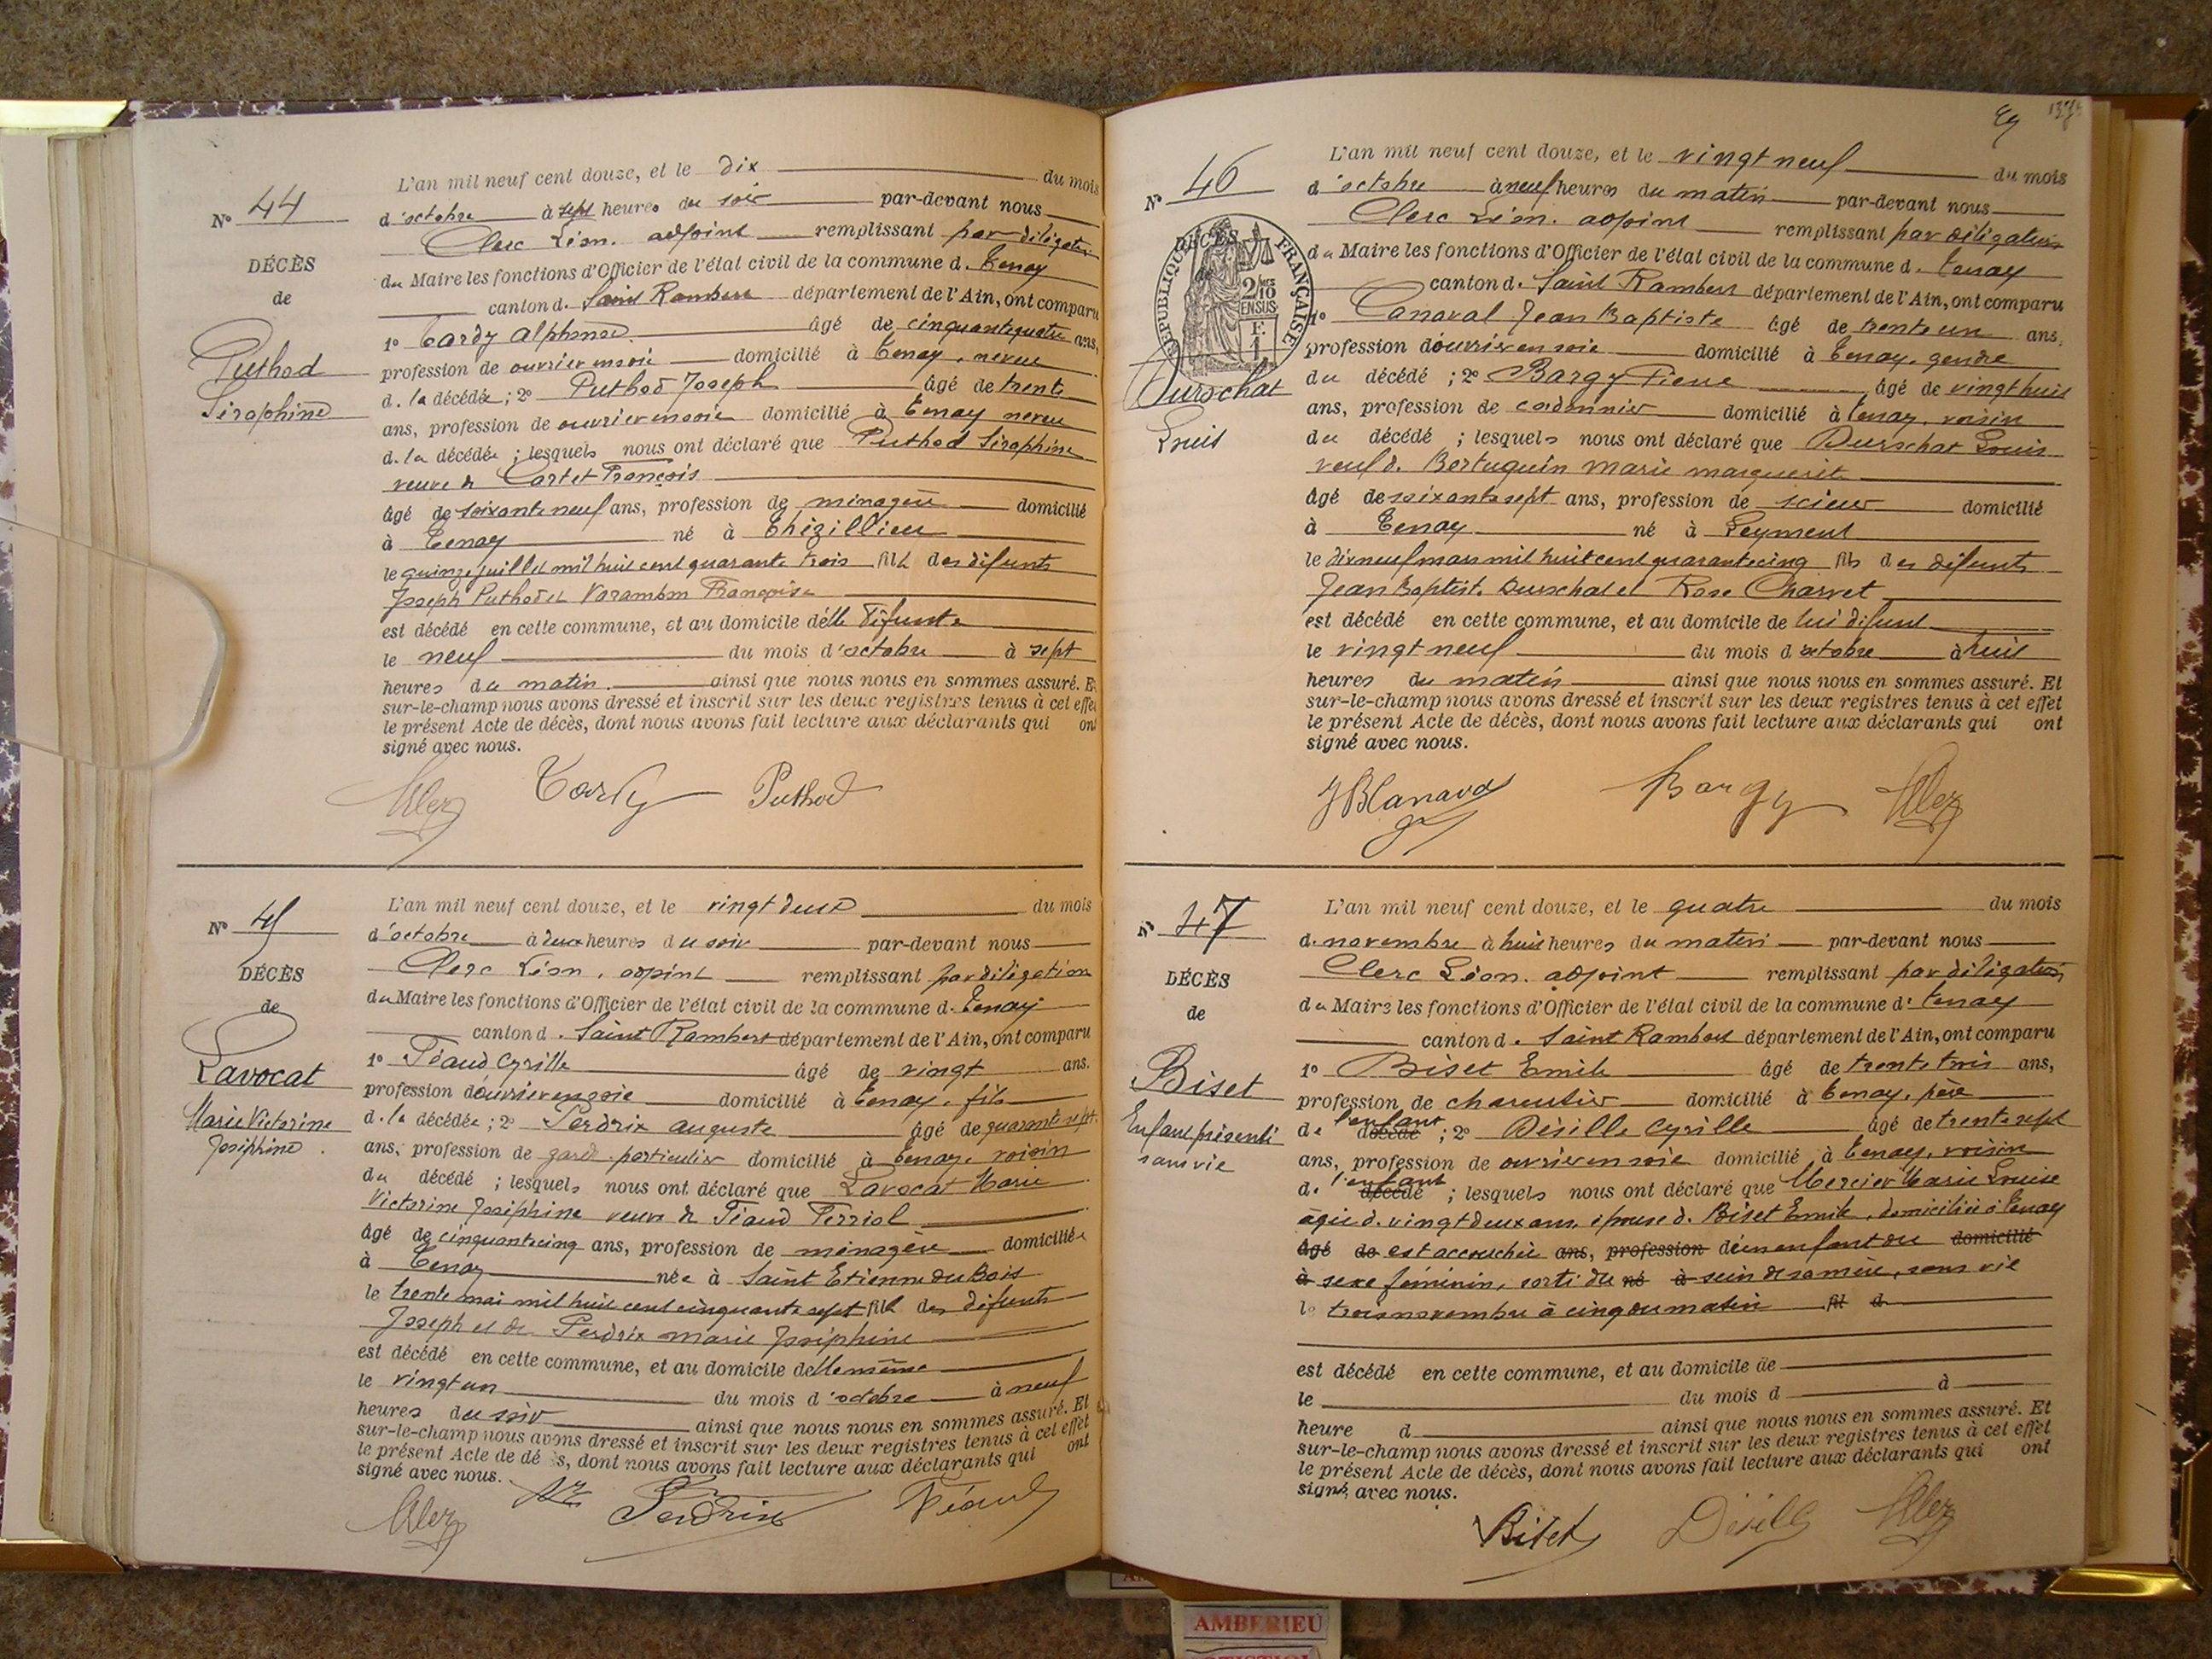 L'an mil neuf cent douze, et le dix du mois
N° 44
d'octobre à sept heures du soir par-devant nous
Clerc Léon, adjoint remplissant par délégation
DÉCÈS
du Maire les fonctions d'Officier de l'état civil de la commune d. Tenay
de
canton d. Saint Rambert département de l'Ain, ont comparu
1° Tardy Alphonse âgé de cinquantequatre ans,
Puthod
profession de ouvrier en soie domicilié à Tenay, neveu
Séraphine
d. la décédée; 2° Puthod Joseph âgé de trente
ans, profession de ouvrier en soie domicilié à Tenay neveu
d. la décédée; lesquels nous ont déclaré que Puthod Séraphine
veuve de Cartet François
âgé de soixante neuf ans, profession de ménagère domicilié
à Tenay né à Thézillieu
le quinze juillet mil huit cent quarante trois fille des défunts
Joseph Puthod et Varambon Françoise
est décédé en cette commune, et au domicile d'elle défunte
le neuf du mois d'octobre à sept
heures du matin. ainsi que nous nous en sommes assuré. Et
sur-le-champ nous avons dressé et inscrit sur les deux registres tenus à cet effet
le présent Acte de décès, dont nous avons fait lecture aux déclarants qui ont
signé avec nous.
Tardy Puthod
L'an mil neuf cent douze, et le vingt deux du mois
N° 45
d'octobre à deux heures du soir par-devant nous
Clerc Léon, adjoint remplissant par délégation
DÉCÈS
du Maire les fonctions d'Officier de l'état civil de la commune d. Tenay
de
canton d. Saint Rambert département de l'Ain, ont comparu
1° Féaud Cyrille âgé de vingt ans.
Lavocat
profession d'ouvrier en soie domicilié à Tenay, fils
Marie Victorine
d. la décédée; 2° Perdrix Auguste âgé de quarante sept.
Joséphine.
ans, profession de garde particulier domicilié à Tenay, voisin
du décédé; lesquels nous ont déclaré que Lavocat Marie
Victorine Joséphine veuve de Féaud
âgé de cinquantecinq ans, profession de ménagère domiciliée
à Tenay née à Saint Etienne du Bois
le trente mai mil huit cent cinquante sept fille des défunts
Joseph et de Perdrix Marie Joséphine
est décédé en cette commune, et au domicile d'elle même
le vingt un du mois d'octobre à neuf
heures du soir ainsi que nous nous en sommes assuré. Et
sur-le-champ nous avons dressé et inscrit sur les deux registres tenus à cet effet
le présent Acte de dé s, dont nous avons fait lecture aux déclarants qui ont
signé avec nous.
Perdrix Féaud
89
L'an mil neuf cent douze, et le vingt neuf du mois
N° 46
d'octobre à neuf heures du matin par-devant nous
Clerc Léon. adjoint remplissant par délégation
du Maire les fonctions d'Officier de l'état civil de la commune d. Tenay
canton d. Saint Rambert département de l'Ain, ont comparu
RÉPUBLIQUE FRANÇAISE
DÉCÈS
2/10
EN SUS
F.
1
1° Canaval Jean Baptiste âgé de trente un ans,
profession d'ouvrier en soie domicilié à Tenay, gendre
Durschat
du décédé; 2° Bargy Pierre âgé de vingt huit
ans, profession de cordonnier domicilié à Tenay, voisin
Louis
du décédé; lesquels nous ont déclaré que Durschat Louis
veuf d. Bertuquin Marie marguerite
âgé de soixante sept ans, profession de scieur domicilié
à Tenay né à Leyment
le dixneuf mars mil huit cent quarantecinq fils des défunts
Jean Baptiste Durschat et Rose Charvet
est décédé en cette commune, et au domicile de lui défunt
le vingt neuf du mois d'octobre à huit
heures du matin ainsi que nous nous en sommes assuré. Et
sur-le-champ nous avons dressé et inscrit sur les deux registres tenus à cet effet
le présent Acte de décès, dont nous avons fait lecture aux déclarants qui ont
signé avec nous.
JB Canaval Bargy
L'an mil neuf cent douze, et le quatre du mois
N° 47
d. novembre à huit heures du matin par-devant nous
Clerc Léon. adjoint remplissant par délégation
DÉCÈS
du Maire les fonctions d'Officier de l'état civil de la commune d. Tenay
de
canton d. Saint Rambert département de l'Ain, ont comparu
1° Biset Emile âgé de trente trois ans,
Biset
profession de charcutier domicilié à Tenay, père
Enfant présenté
de l'enfant décédé; 2° Désille Cyrille âgé de trente sept
sans vie
ans, profession de ouvrier en soie domicilié à Tenay, voisin
d. l'enfant décédé; lesquels nous ont déclaré que Mercier Marie Louise
agée d. vingt deux ans, épouse d. Biset Emile, domiciliée à Tenay
âgé de est accouchée ans, profession d'un enfant du domicilié
à sexe féminin, sorti du né à sein de sa mère, sans vie
le trois novembre à cinq du matin fil d
est décédé en cette commune, et au domicile de
le du mois d à
heure d ainsi que nous nous en sommes assuré. Et
sur-le-champ nous avons dressé et inscrit sur les deux registres tenus à cet effet
le présent Acte de décès, dont nous avons fait lecture aux déclarants qui ont
signé avec nous.
Biset Désille
AMBERIEU